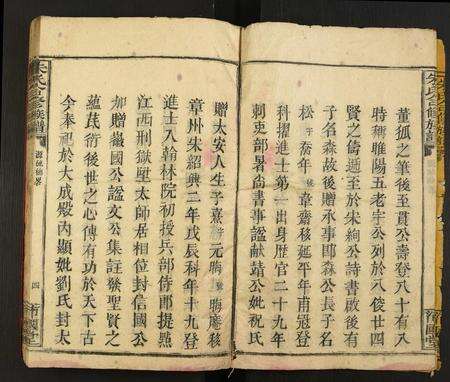 董狐之筆後至貫公壽登八十有八
特稱睢陽五老字公列於八俊廿四
賢之儔遞至於朱絢公詩書啟後有
子名森故後贈承事郎森公長子名
松字喬年號韋齋移延平年甫冠登
科擢進士第一出身歷官二十九年
刺吏部署尚書事諡獻靖公妣祝氏
贈太安人生子熹字元晦號晦庵移
章州朱紹興二年戊辰科年十九登
進士入翰林院初授兵部侍郎提㸃
江西刑獄歷太師居相位封信國公
加贈徽國公諡文公集註發聖賢之
蘊莪衍後世之心傳有功於天下古
今奉祀於大成殿內顯妣劉氏封太
朱氏合修族譜
源流備畧
四